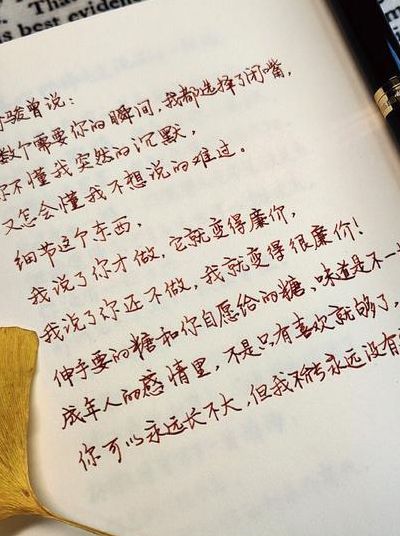 Tha
s best evidence
骏曾说：
数个需要你的瞬间，我都选择了闭嘴，
你不懂我突然的沉默，
又怎会懂我不想说的难过。
细节这个东西，
我说了你才做，它就变得廉价，
我说了你还不做，我就变得很廉价！
伸手要的糖和你自愿给的糖、味道是不一
成年人的感情里，不是只有喜欢就够了，
你可以永远长不大，但我不能永远没有